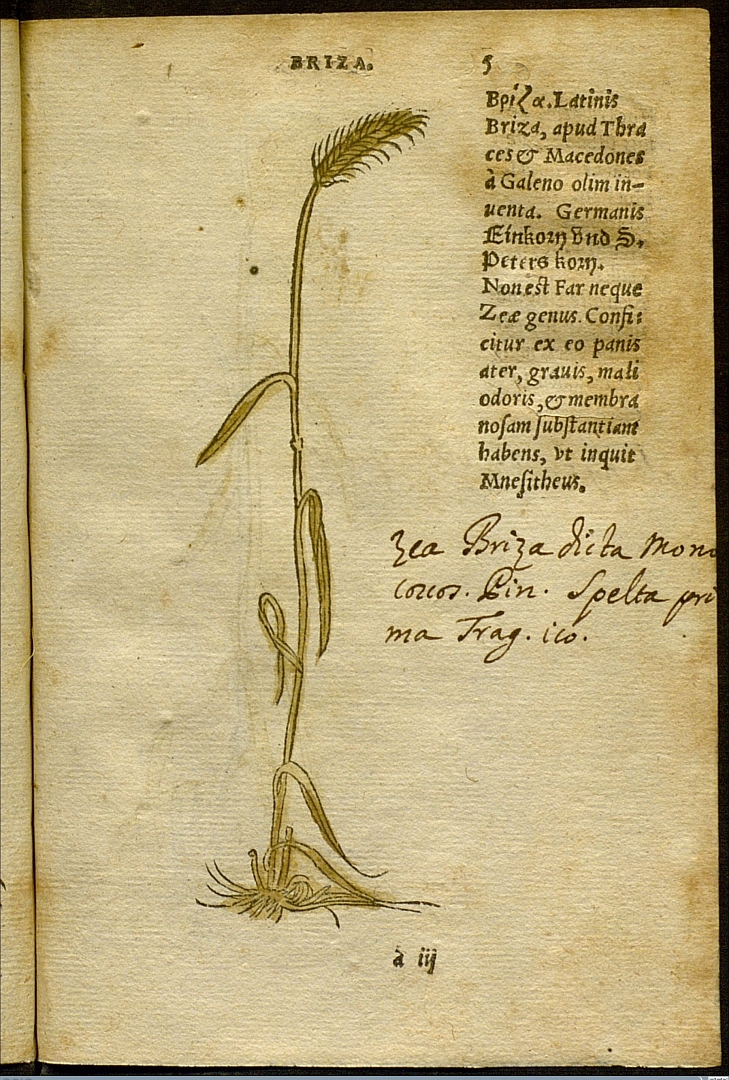 BRIZA. 5
Βρίζα. Latinis
Briza, apud Thra
ces & Macedones
à Galeno olim in-
uenta. Germanis
Einkorn vnd S.
Peters korn.
Non est Far neque
Zeæ genus. Confi:
citur ex eo panis
ater, grauis, mali
odoris, & membra
nosam substantiam
habens, vt inquit
Mnesitheus.
Zea Briza dicta Mono
coccos. Pin. Spelta pri
ma Trag. ico.
a iij